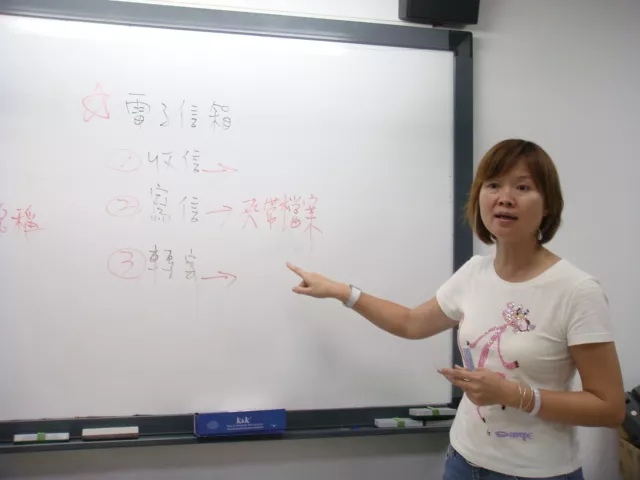 ☆ 電子信箱
① 收信 →
② 寫信 → 夾帶檔案
③ 轉寄 →
k&k